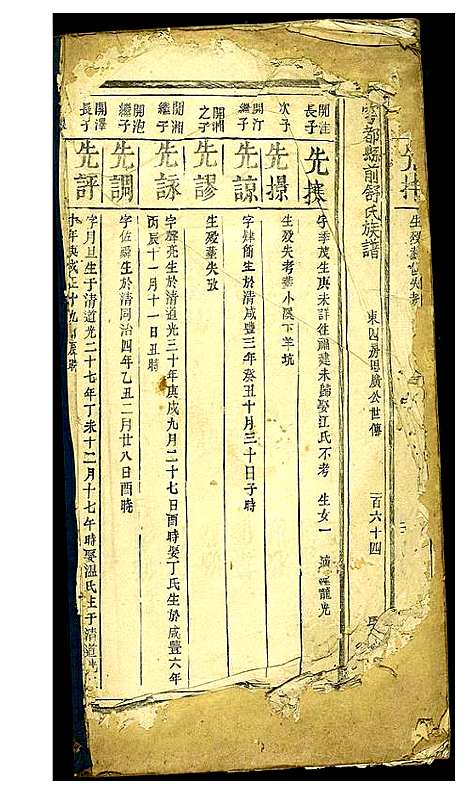 先
生歿葬俱失考
雩都縣前舒氏族譜
東四房思廣公世傳
一百六十四
開注長子
先攘
字季茂生庚未詳往福建未歸娶江氏不考 生女一 適 龍光
次子
先攃
生歿失考葬小溪下羊坑
開汀繼子
先諒
字肆簡生於清咸豐三年癸丑十月三十日子時
開湘之子
先謬
生歿葬失攷
開湘繼子
先詠
字聲亮生於清道光三十年庚戌九月二十七日酉時娶丁氏生於咸豐六年
丙辰十一月十一日丑時
開泡繼子
先調
字佐舜生於清同治四年乙丑二月廿八日酉時
開澤長子
先評
字月旦生于清道光二十七年丁未十二月十七午時娶溫氏生于清道光
十年庚戌正十九 辰時